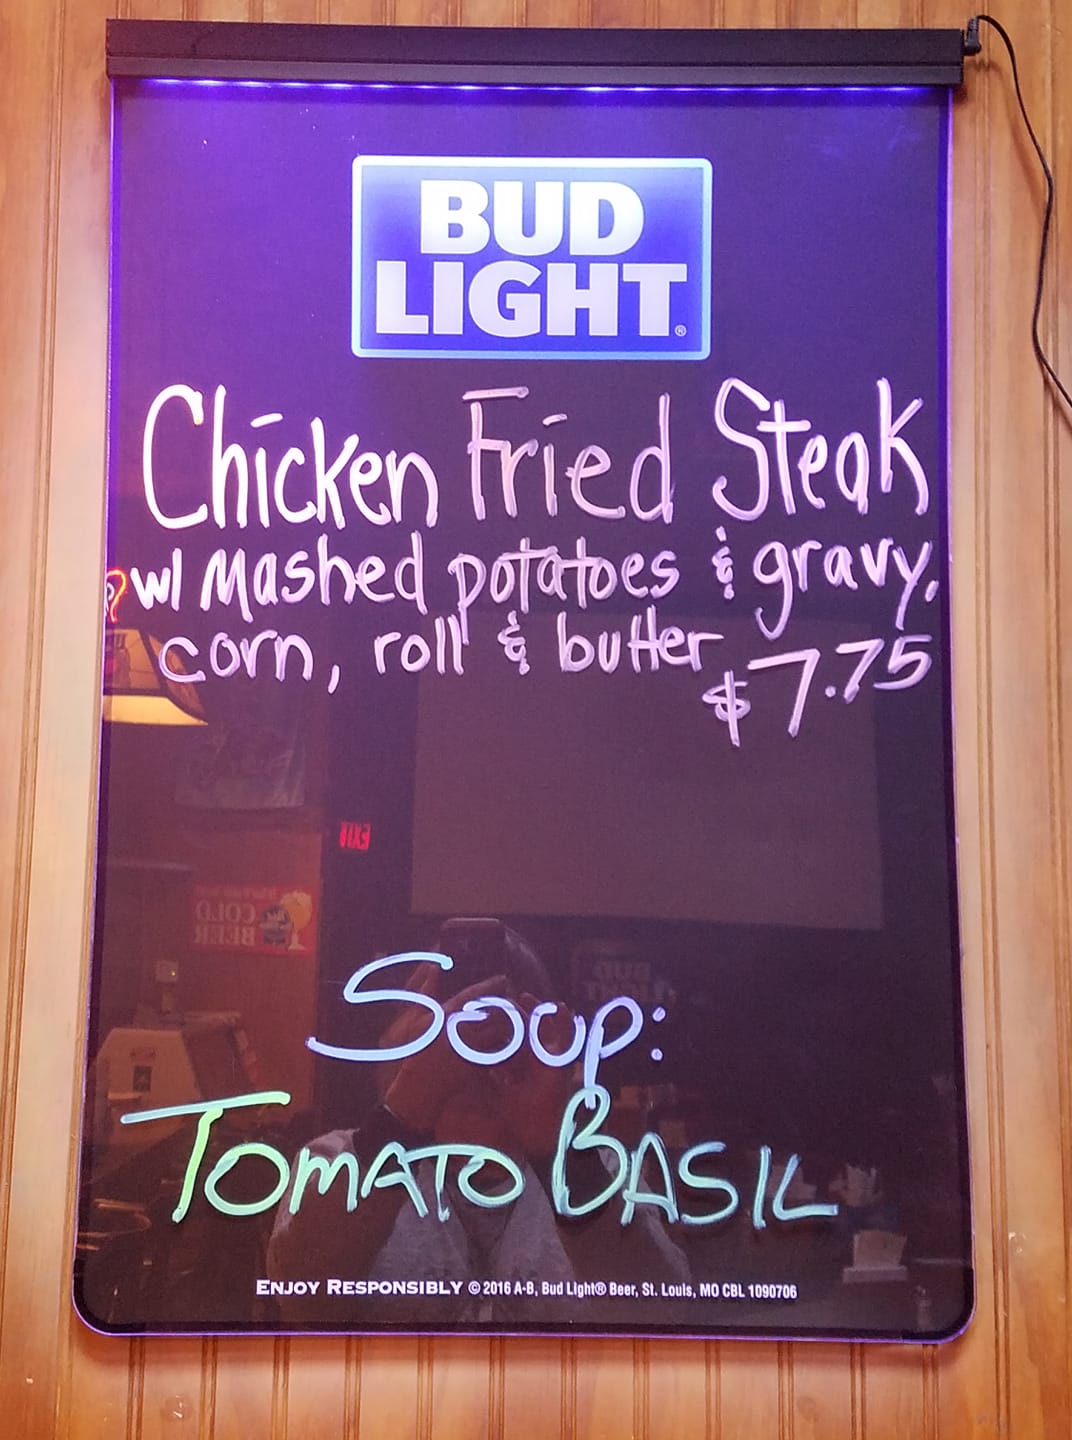 BUD
LIGHT®
Chicken Fried Steak
w/ Mashed potatoes & gravy.
corn, roll & butter
$7.75
EXIT
COLD
BEER
BUD
LIGHT
Soup:
Tomato Basil
Enjoy Responsibly © 2016 A-B, Bud Light® Beer, St. Louis, MO CBL 1090706